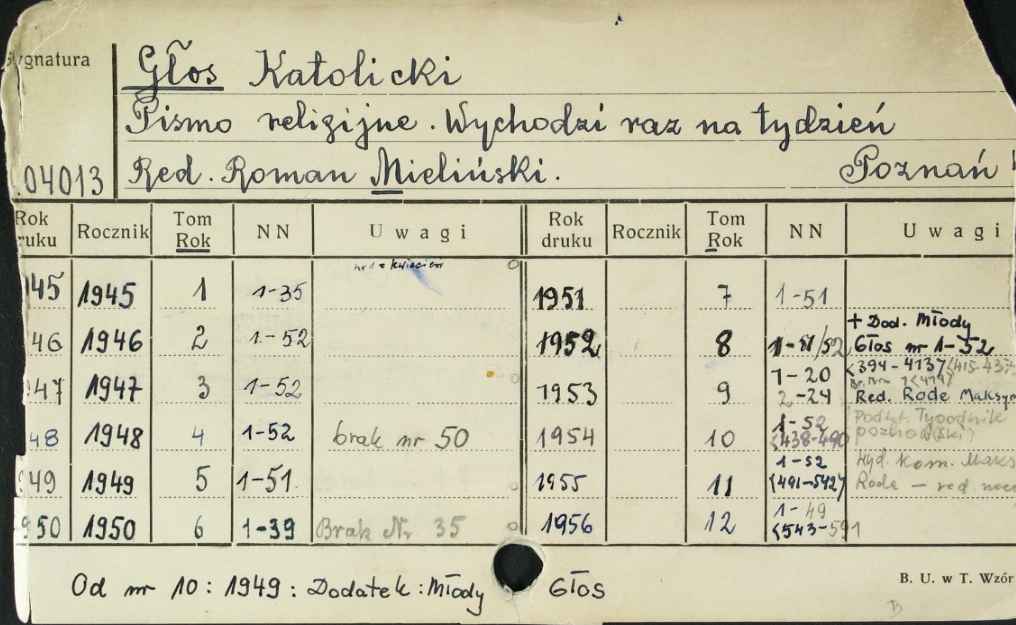 Sygnatura
Głos Katolicki
Pismo religijne. Wychodzi raz na tydzień
04013 Red. Roman Mieliński. Poznań
Rok druku Rocznik Tom Rok NN Uwagi Rok druku Rocznik Tom Rok NN Uwagi
45 1945 1 1-35 1951 7 1-51
46 1946 2 1-52 1952 8 1-51/52 + Dod. Młody Głos nr 1-52
47 1947 3 1-52 1953 9 1-20 2-24 Red. Rode Maksym
48 1948 4 1-52 brak nr 50 1954 10 1-52 (438-490
49 1949 5 1-51 1955 11 1-52 (491-542) Rode — red.
950 1950 6 1-39 Brak Nr 35 1956 12 1-49 (543-591
Od nr 10: 1949: Dodatek: Młody Głos
B. U. w T. Wzór